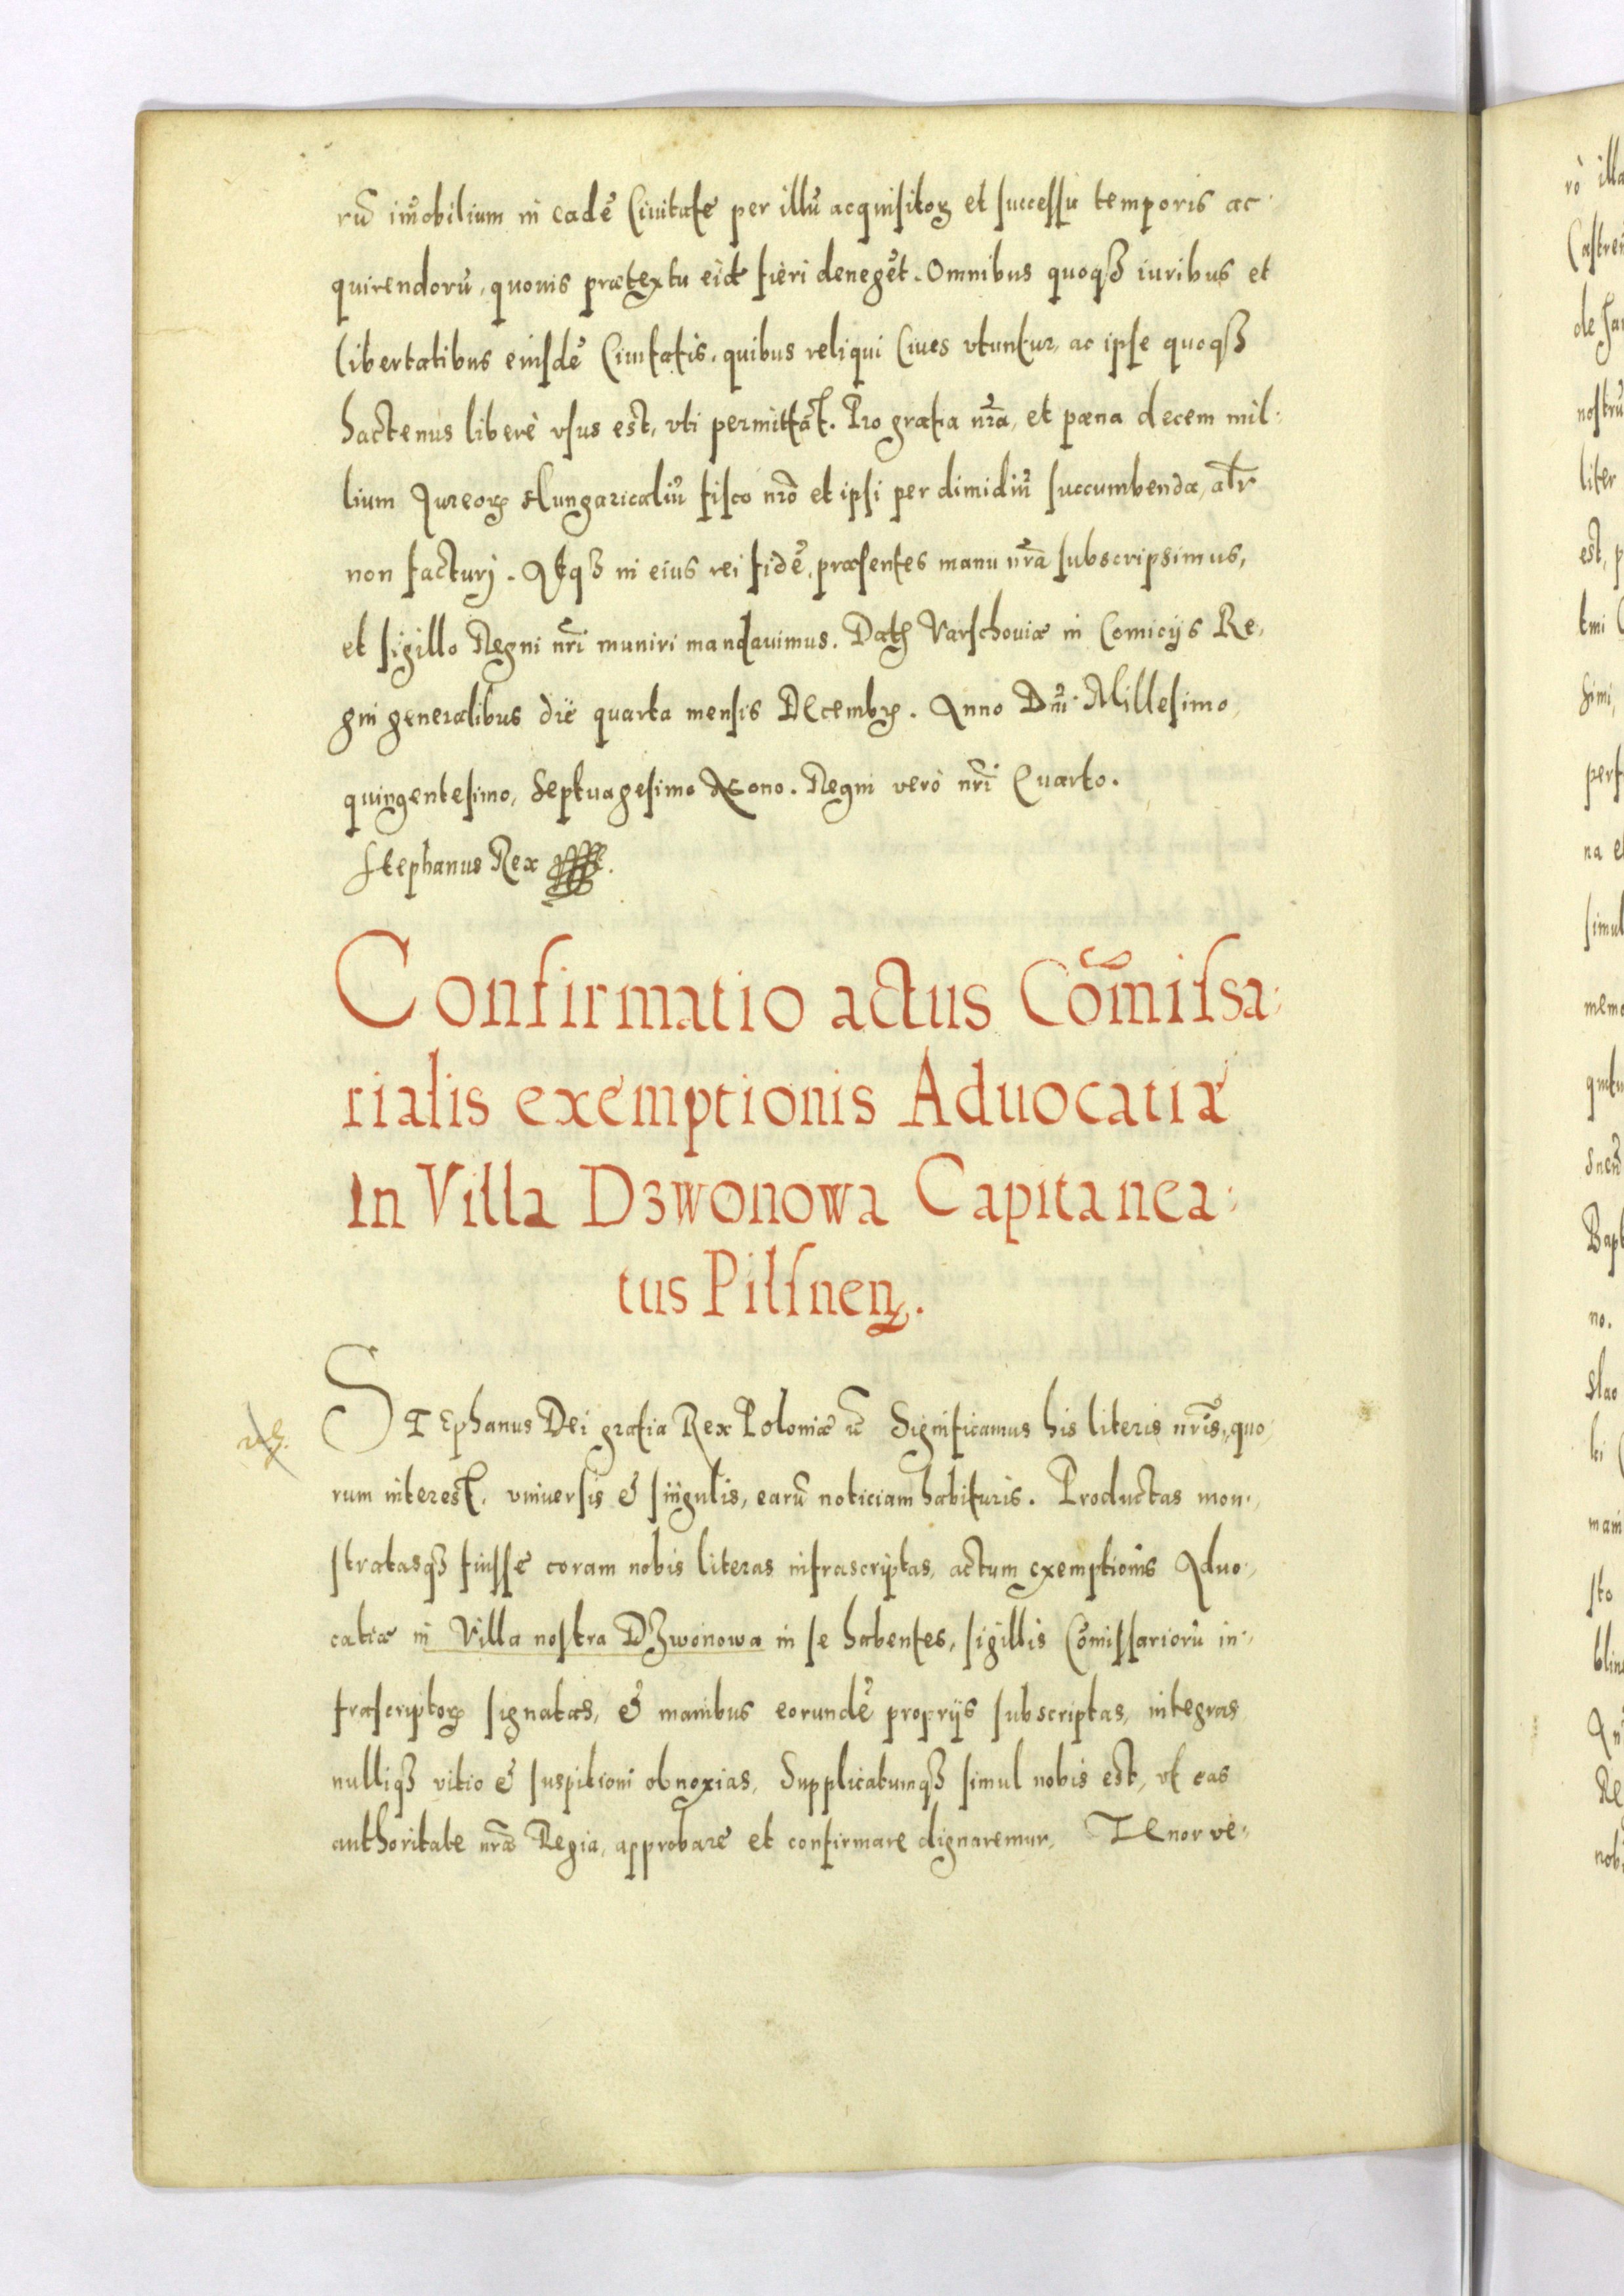 rū im̄obilium in eadē Ciuitate per illū acquisitoꝝ et successu temporis ac-
quirendorū, quouis prætextu eid fieri denegēt. Omnibus quoqȝ iuribus et
libertatibus eiusdē Ciuitatis, quibus reliqui Ciues vtuntur, ac ipse quoqȝ
hactenus liberè vsus est, vti permittāt. Pro gratia nr̄a, et pæna decem mil-
lium Aureoꝝ Hungaricaliū fisco nr̄o et ipsi per dimidiū succumbenda, alr
non facturj. Atqȝ in eius rei fidē, præsentes manu nr̄a subscripsimus,
et sigillo Regni nr̄i muniri mandauimus. Datꝫ Varschouiæ in Comicijs Re-
gni generalibus die quarta mensis Decembrꝫ. Anno Dn̄i Millesimo,
quingentesimo, Septuagesimo Nono. Regni verò nr̄i Quarto.
Stephanus Rex
Confirmatio actus Com̄issa-
rialis exemptionis Aduocatiæ
in Villa Dzwonowa Capitanea-
tus Pilsnenꝫ.
STEphanus Dei gratia Rex Poloniæ Significamus his literis nr̄is, quo-
rum interest, vniuersis & singulis, earū noticiam habituris. Productas mon-
stratasqȝ fuisse coram nobis literas infrascriptas, actum exemptionis Aduo-
catiæ in Villa nostra Dzwonowa in se habentes, sigillis Com̄issariorū in-
frascriptoꝝ signatas, & manibus eorundē proprijs subscriptas, integras
nulliqȝ vitio & suspitioni obnoxias, Supplicatumqȝ simul nobis est, vt eas
authoritate nr̄a Regia, approbare et confirmare dignaremur, TEnor ve-